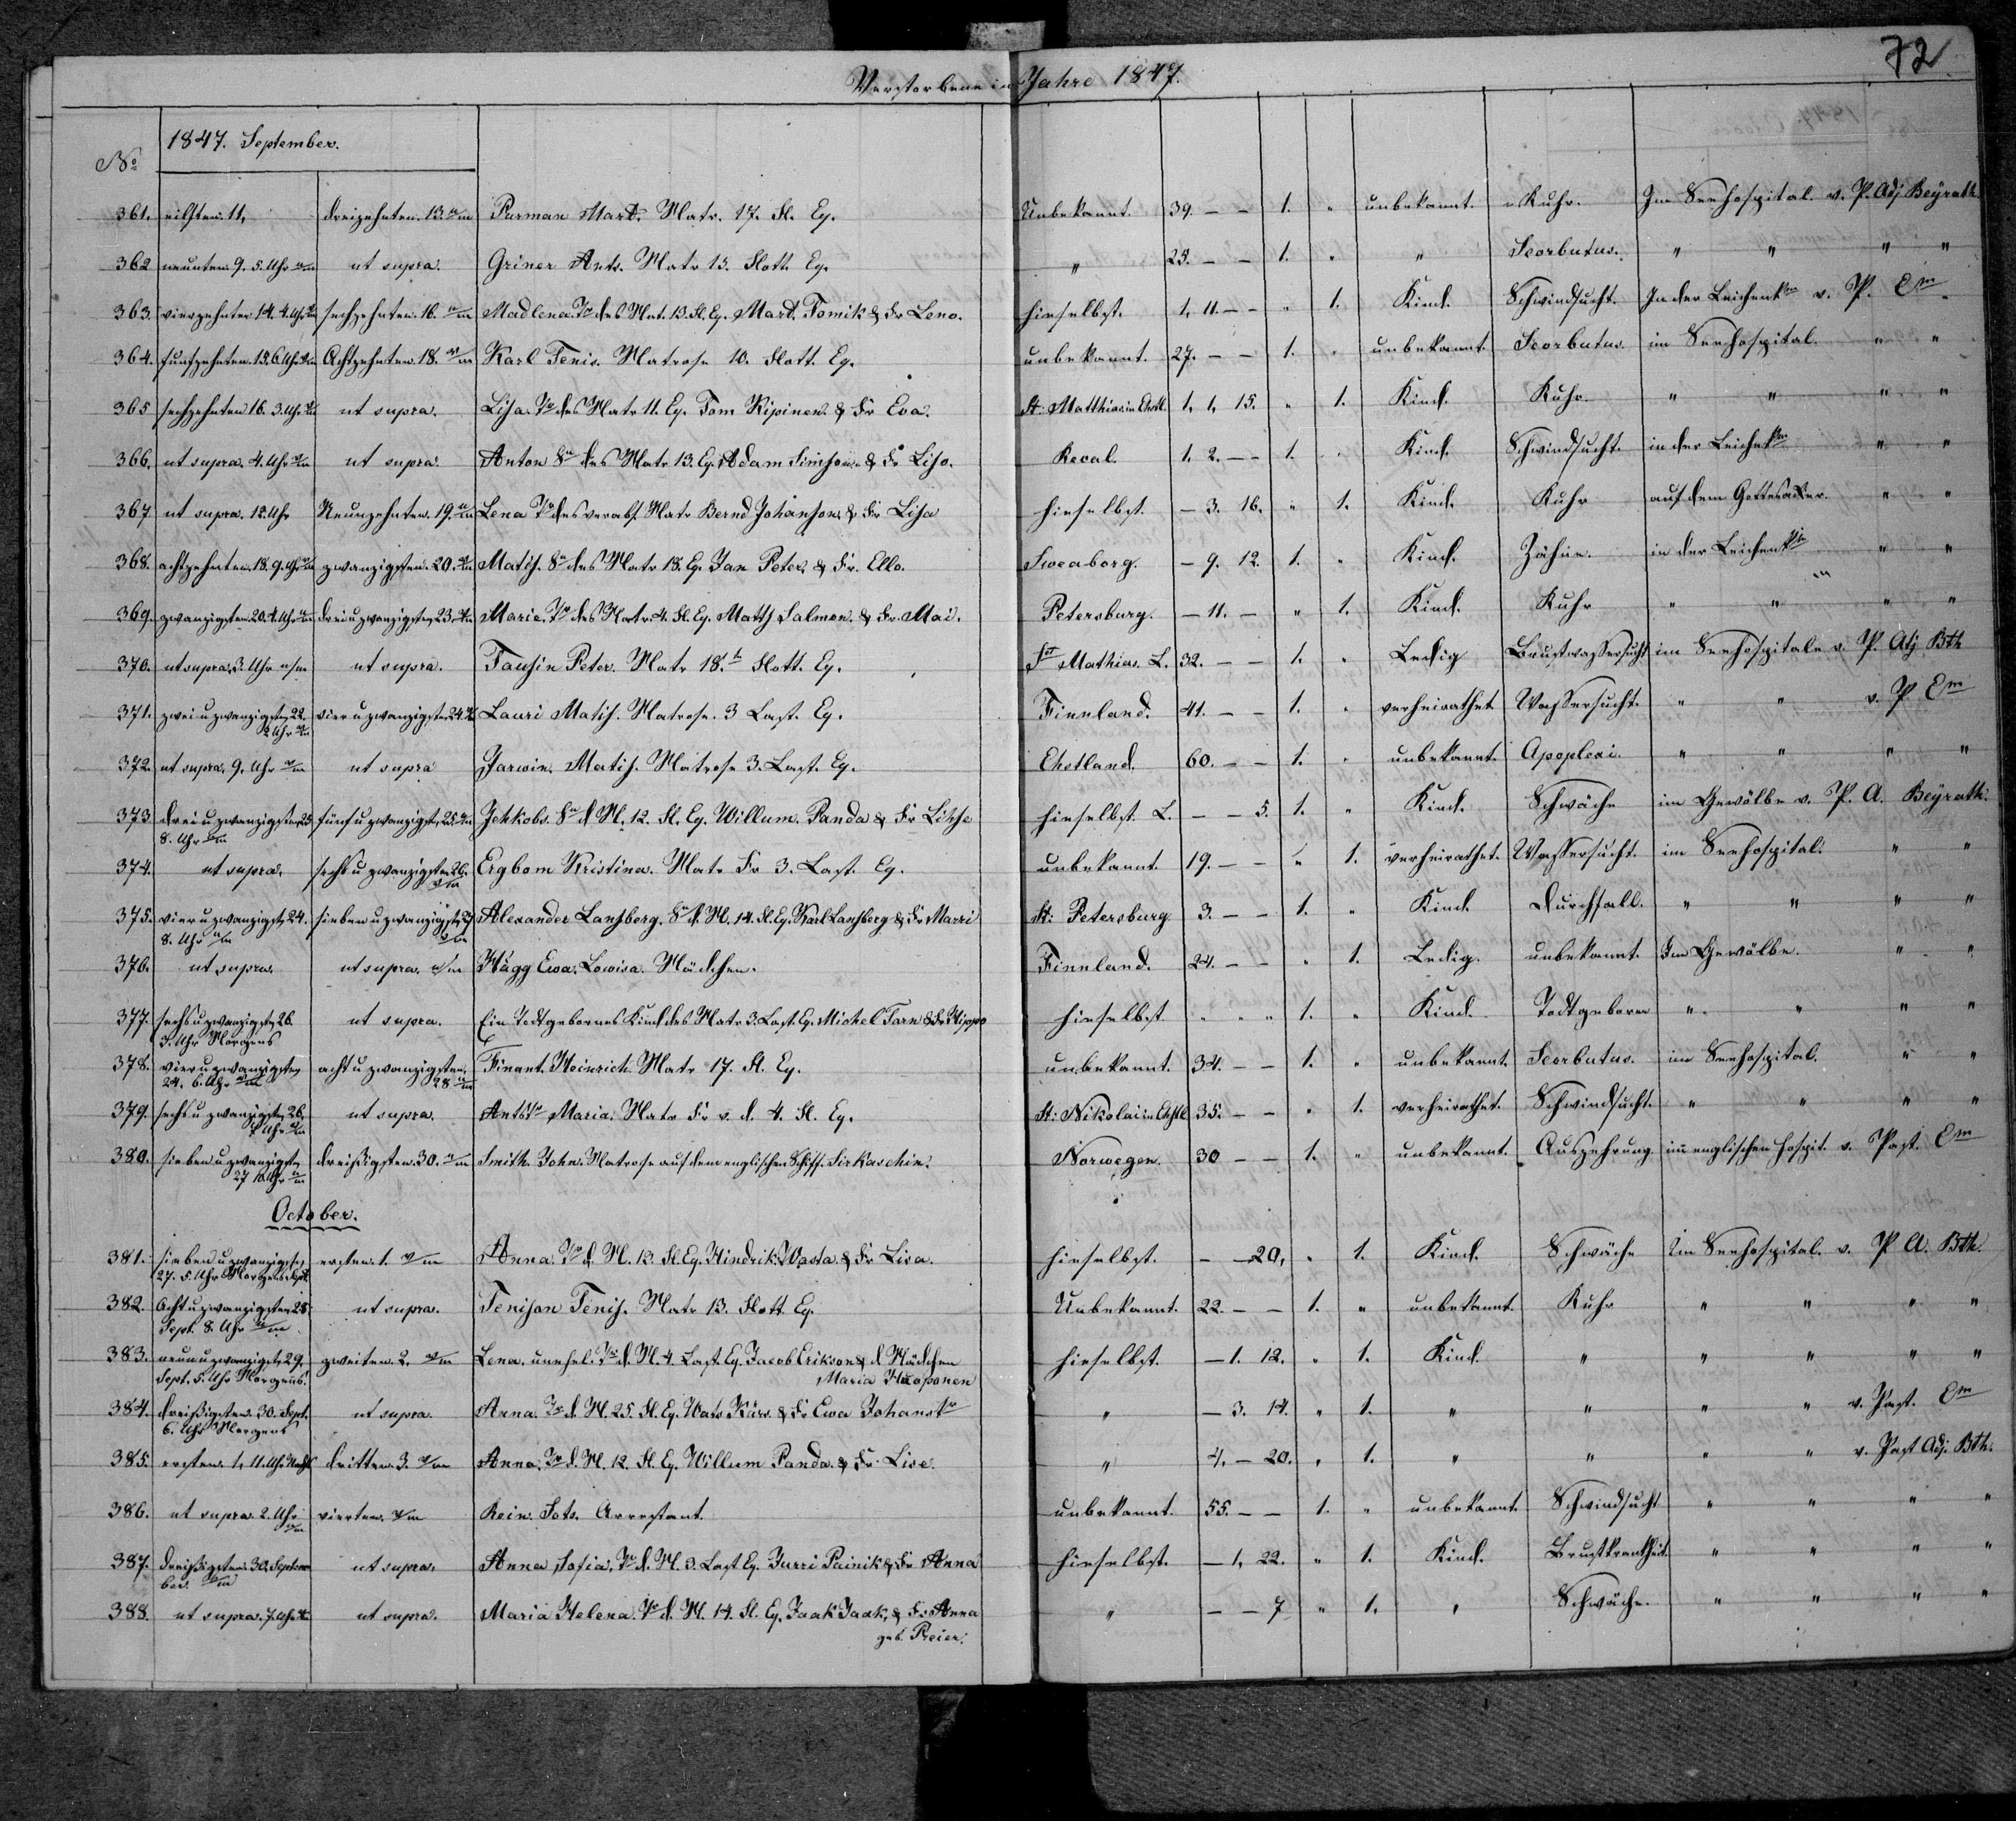 72
Verstorbene im Jahre 1847.
No 1847. September.
361. eilften 11. dreizehnten 13 n/m Purman Mart. Matr. 17. Fl. Eq. Unbekannt. 39. – – 1. " unbekannt. Ruhr. Im Seehospital v. P. Adj Beyrath
362 neunten 9. 5. Uhr n/m ut supra. Griner Ants. Matr 13. Flott. Eq. " 25. – – 1. " " Scorbutus. " " " "
363. vierzehnten 14. 4. Uhr sechzehnten 16. n/m Madlena. Tr des Mat. 13. Fl. Eq. Mart. Tomik & Fr Leno. hieselbst. 1, 11. – – " 1. Kind. Schwindsucht. In der Leichenk v. P. Em
364. funfzehnten 15. 6 Uhr Achtzehnten 18 n/m Karl Tenis. Matrose 10. Flott. Eq. unbekannt. 27. – – 1. " unbekannt Scorbutus. im Seehospital " "
365 sechzehnten 16. 3. Uhr ut supra. Lisa. Tr des Matr 11. Eq. Tom Kipinen. & Fr Eva. St. Matthias in Ehstl. 1, 1, 15. " 1. Kind. Ruhr. " " " "
366. ut supra. 4. Uhr ut supra. Anton Sn des Matr 13. Eq. Adam Simson. & Fr Liso. Reval. 1. 2. – – 1. " Kind. Schwindsucht. in der Leichenk " "
367 ut supra. 12. Uhr Neunzehnten. 19. n/m Lena Tr des verabs. Matr Bernd Johanson. & Fr Lisa hieselbst. – 3. 16. " 1. Kind. Ruhr auf dem Gottesacker. " "
368. achtzehnten. 18. 9. Uhr zwanzigsten. 20. Matis. Sn des Matr 18. Eq. Jan Peter. & Fr. Ello. Sweaborg. – 9. 12. 1. " Kind. Zähne. in der Leichenk " "
369. zwanzigsten 20. 4. Uhr dreiuzwanzigsten 23. Marie. Tr des Matr. 4. Fl. Eq. Matts Salmon. & Fr. Mai. Petersburg. – 11. – " 1. Kind. Ruhr " " " "
370. ut supra. 3. Uhr n/m ut supra. Tausin Peter. Matr 18. Flott. Eq. Mathias. L. 32. – – 1. " Ledig Brustwassersucht im Seehospitale v. P. Adj Bth
371. zweiuzwanzigsten 22. 2 Uhr vieruzwanzigsten 24. Lauri Matis. Matrose. 3 Last. Eq. Finnland. 41. – – 1. " verheirathet Wassersucht. " " v. P. Em
372. ut supra. 9. Uhr n/m ut supra Jarwin. Matis. Matrose 3. Last. Eq. Ehstland. 60. – – 1. " unbekannt. Apoplexi. " " " "
373 dreiuzwanzigsten 23 8. Uhr fünfuzwanzigsten 25. Jehkobs. Sn d M. 12. Fl. Eq. Willum. Panda & Fr Lihse hieselbst L. – – 5. 1. " Kind. Schwäche im Gewölbe v. P. A. Beyrath.
374. ut supra. sechsuzwanzigsten 26. Ergbom Kristina. Matr Fr 3. Last. Eq. unbekannt. 19. – – " 1. verheirathet. Wassersucht. im Seehospital. " "
375. vieruzwanzigst. 24. 8. Uhr n/m siebenuzwanzigst. 27 Alexander Lansberg. Sn d. M. 14. Fl. Eq. Karl Lansberg & Fr Marri St. Petersburg 3. – – 1. " Kind. Durchfall. " " " "
376. ut supra. ut supra. n/m Hägg Ewa. Lowisa. Mädchen. Finnland. 24. – – " 1. Ledig. unbekannt. Im Gewölbe. " "
377. sechsuzwanzigsten 26. 3. Uhr Morgens ut supra. Ein Todtgebornes Kind des Matr 3. Last. Eq. Michel Tarn & Fr Hippo hieselbst. " " " 1. " Kind. Todtgeboren " " " "
378. vieruzwanzigsten 24. 6. Uhr achtuzwanzigsten. 28 Finant. Heinrich. Matr 17. Fl. Eq. unbekannt. 34. – – 1. " unbekannt. Scorbutus. im Seehospital. " "
379. sechsuzwanzigst 26. 7 Uhr ut supra. Antstr Maria. Matr Fr v. d. 4. Fl. Eq. St. Nikolai in Ehstl. 35. – – " 1. verheirathet. Schwindsucht. " " " "
380. siebenuzwanzigsten 27 10 Uhr dreißigsten. 30. n/m Smith. John. Matrose auf dem englischen Schiff. Sirkaschin. Norwegen. 30 – – 1. " unbekannt. Auszehrung im englischen Hospit. v. Past. Em
October.
381. siebenuzwanzigsten 27. 5. Uhr Morgens Sept. ersten. 1. n/m Anna. Tr d. M. 13. Fl. Eq. Hindrik. Wasta. & Fr Lisa. hieselbst. – – 20. " 1. Kind. Schwäche Im Seehospital. v. P. A. Bth.
382. Achtuzwanzigsten 28. Sept. 8. Uhr n/m ut supra. Tenison Tenis. Matr 13. Flott Eq. Unbekannt. 22. – – 1. " unbekannt Ruhr " " " "
383. neunuzwanzigst 29. Sept. 5. Uhr Morgens. zweiten. 2. n/m Lena. unehel. Tr d. M. 4. Last. Eq. Jacob Erikson & d Mädchen Maria Haaponen hieselbst. – 1. 12. " 1. Kind. " " " " "
384. dreißigsten. 30. Sept. 6. Uhr Morgens ut supra. Anna. Tr d. M. 25. Fl. Eq. Mats Kurs. & Fr Ewa Johanstr " – 3. 14. " 1. " " " " v. Past. Em
385. ersten. 1. 11. Uhr dritten 3. n/m Anna. Tr d. M. 12. Fl. Eq. Willum Panda. & Fr. Lise. " 4. – 20. " 1. " " " " v. Past Adj. Bth.
386. ut supra. 2. Uhr vierten. n/m Rein. Jots. Arrestant. unbekannt. 55. – – 1. " unbekannt. Schwindsucht " " " "
387. dreißigsten. 30. September. ut supra. Anna, Sofia, Tr d. M. 3. Last Eq. Jurri Painik & Fr Anna hieselbst. – 1, 22. " 1. Kind. Brustkrankheit. " " " "
388. ut supra. 7. Uhr ut supra. Maria Helena. Tr d. M. 14. Fl. Eq. Jaak Jaak, & Fr. Anna geb. Preier. " – – 7 " 1. " Schwäche. " " " "